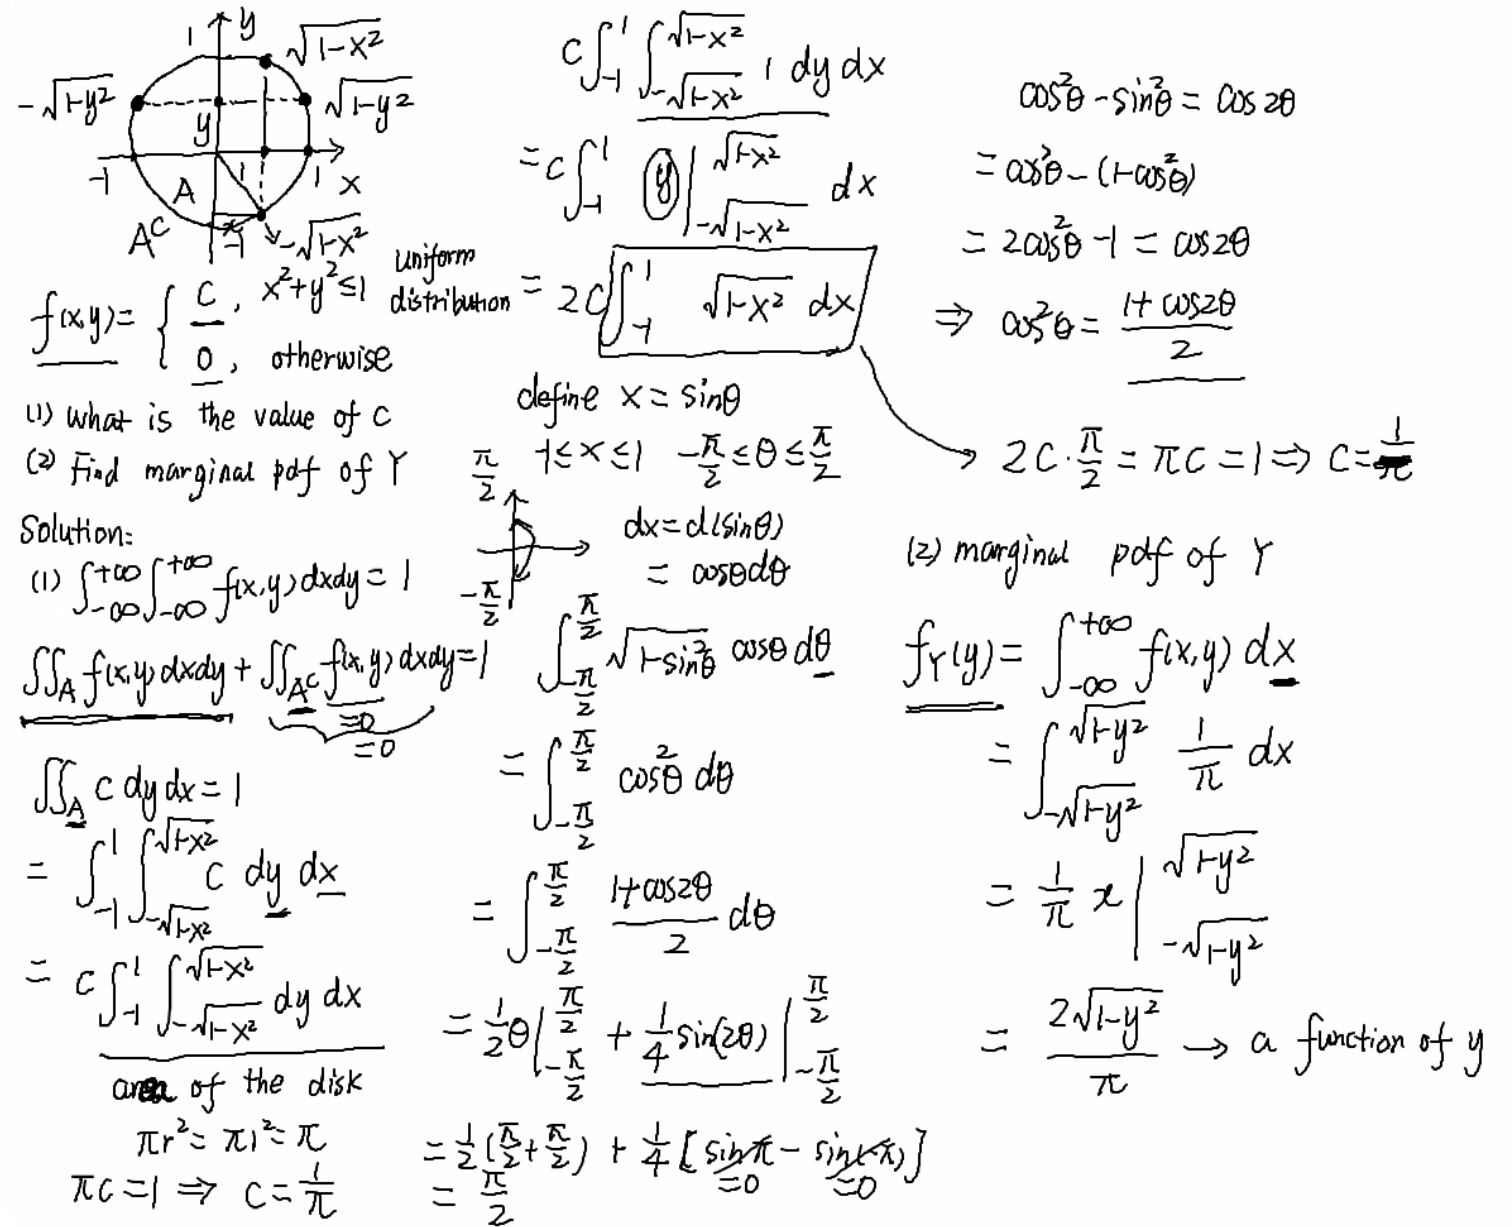 1 y √(1-x²)
-√(1-y²) √(1-y²)
y
-1 1 1 x
A
Aᶜ x -1 -√(1-x²)
f(x,y) = { C, x²+y² ≤ 1 uniform distribution
0, otherwise
(1) What is the value of C
(2) Find marginal pdf of Y
Solution:
(1) ∫_{-∞}^{+∞} ∫_{-∞}^{+∞} f(x,y) dxdy = 1
∬_A f(x,y) dxdy + ∬_{Aᶜ} f(x,y) dxdy = 1
=0
=0
∬_A c dy dx = 1
= ∫_{-1}^{1} ∫_{-√(1-x²)}^{√(1-x²)} C dy dx
= C ∫_{-1}^{1} ∫_{-√(1-x²)}^{√(1-x²)} dy dx
area of the disk
πr² = π1² = π
πc = 1 ⇒ C = 1/π
C ∫_{-1}^{1} ∫_{-√(1-x²)}^{√(1-x²)} 1 dy dx
= C ∫_{-1}^{1} y |_{-√(1-x²)}^{√(1-x²)} dx
= 2C ∫_{-1}^{1} √(1-x²) dx
define x = sinθ
-1 ≤ x ≤ 1 -π/2 ≤ θ ≤ π/2
π/2
-π/2
dx = d(sinθ)
= cosθdθ
∫_{-π/2}^{π/2} √(1-sin²θ) cosθ dθ
= ∫_{-π/2}^{π/2} cos²θ dθ
= ∫_{-π/2}^{π/2} (1+cos2θ)/2 dθ
= 1/2 θ |_{-π/2}^{π/2} + 1/4 sin(2θ) |_{-π/2}^{π/2}
= 1/2 (π/2 + π/2) + 1/4 [sinπ - sin(-π)]
=0 =0
= π/2
cos²θ - sin²θ = cos2θ
= cos²θ - (1-cos²θ)
= 2cos²θ - 1 = cos2θ
⇒ cos²θ = (1+cos2θ)/2
2C · π/2 = πC = 1 ⇒ C = 1/π
(2) marginal pdf of Y
f_Y(y) = ∫_{-∞}^{+∞} f(x,y) dx
= ∫_{-√(1-y²)}^{√(1-y²)} 1/π dx
= 1/π x |_{-√(1-y²)}^{√(1-y²)}
= 2√(1-y²)/π → a function of y